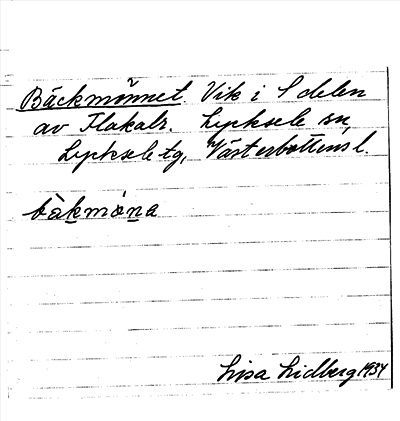 Bäckmönnet. Vik i S delen
av Flakatr. Lycksele sn,
Lycksele tg, Västerbottens l.
bäkmöna
Lisa Lidberg 1934